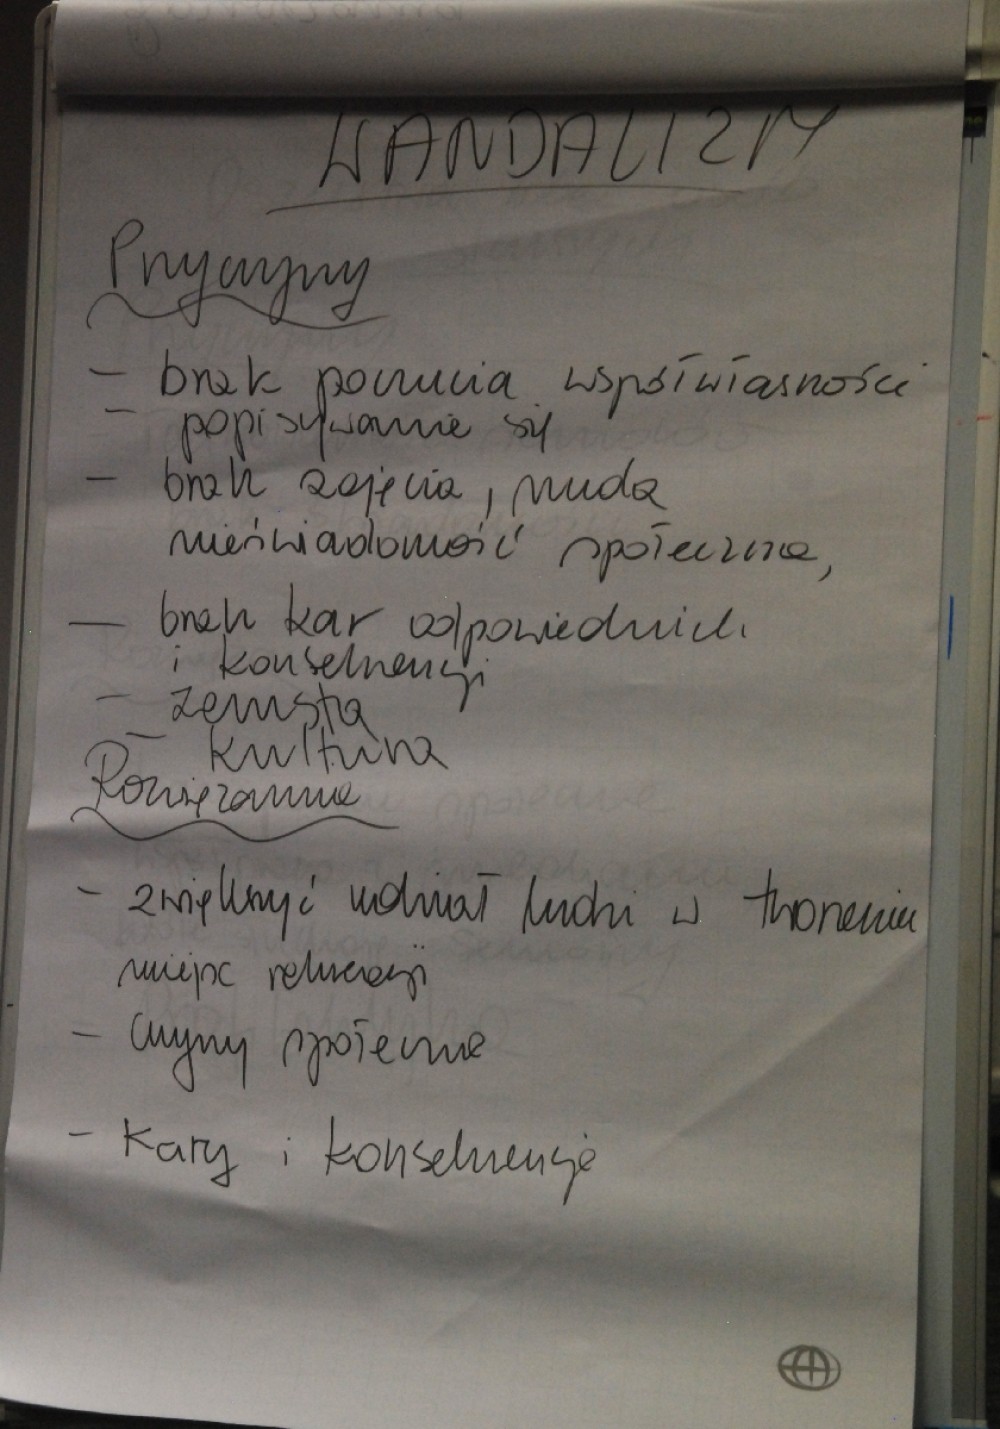 WANDALIZM
Przyczyny
- brak poczucia współwłasności
- popisywanie się
- brak zajęcia, nuda
nieświadomość społeczna,
- brak kar odpowiednich
i konsekwencji
- zemsta
- kultura
Rozwiązania
- zwiększyć udział ludzi w tworzeniu
miejsc rekreacji
- czyny społeczne
- Kary i konsekwencje